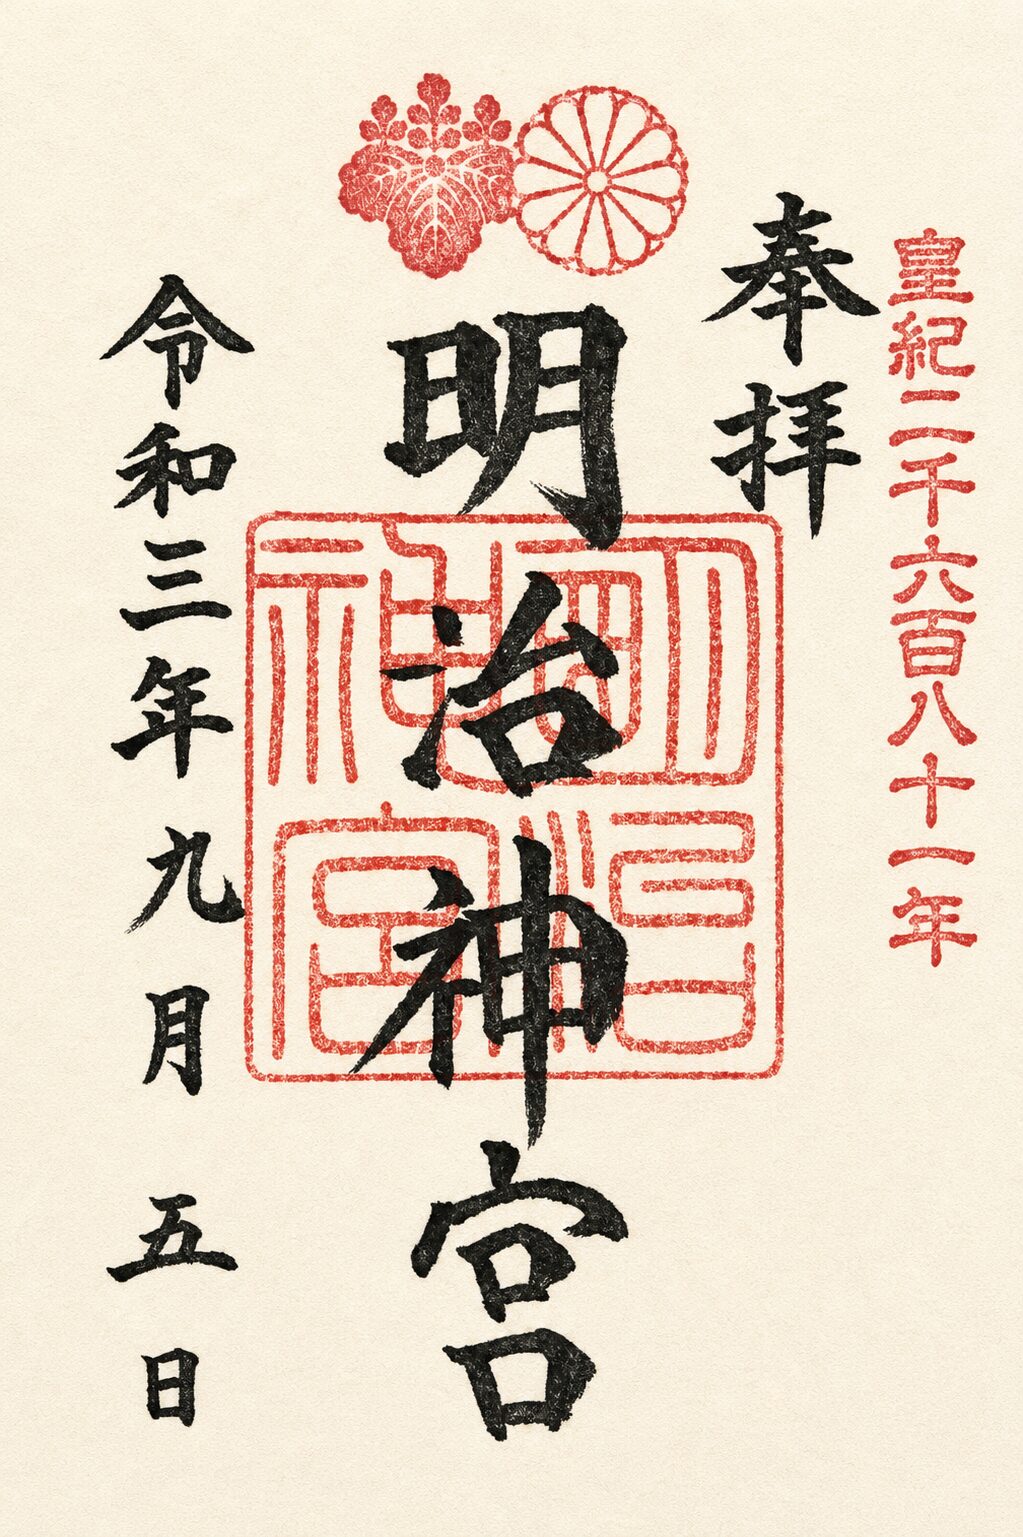 皇紀二千六百八十一年
奉拝
明治神宮
明治
神宮
令和三年九月五日